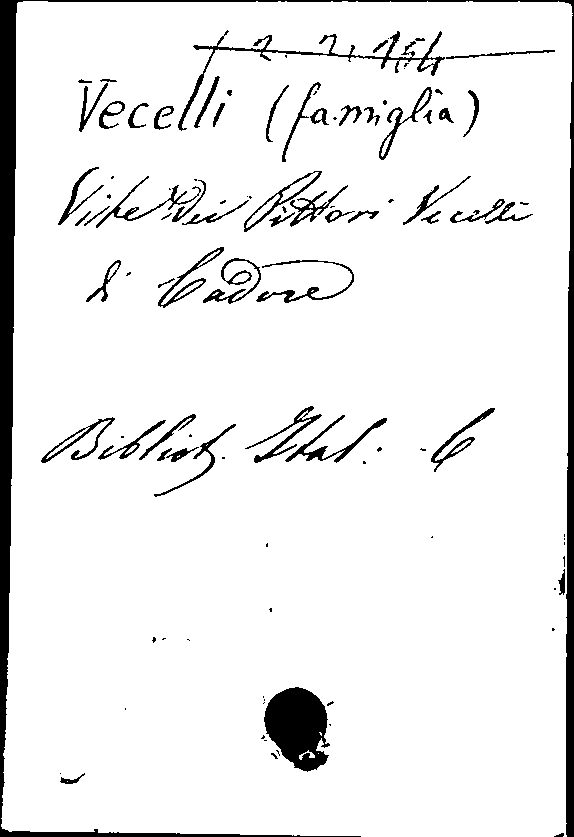 f 2. 2. 154
Vecelli (famiglia)
Vite dei Pittori Vecelli
di Cadore
Bibliot. Ital. 6